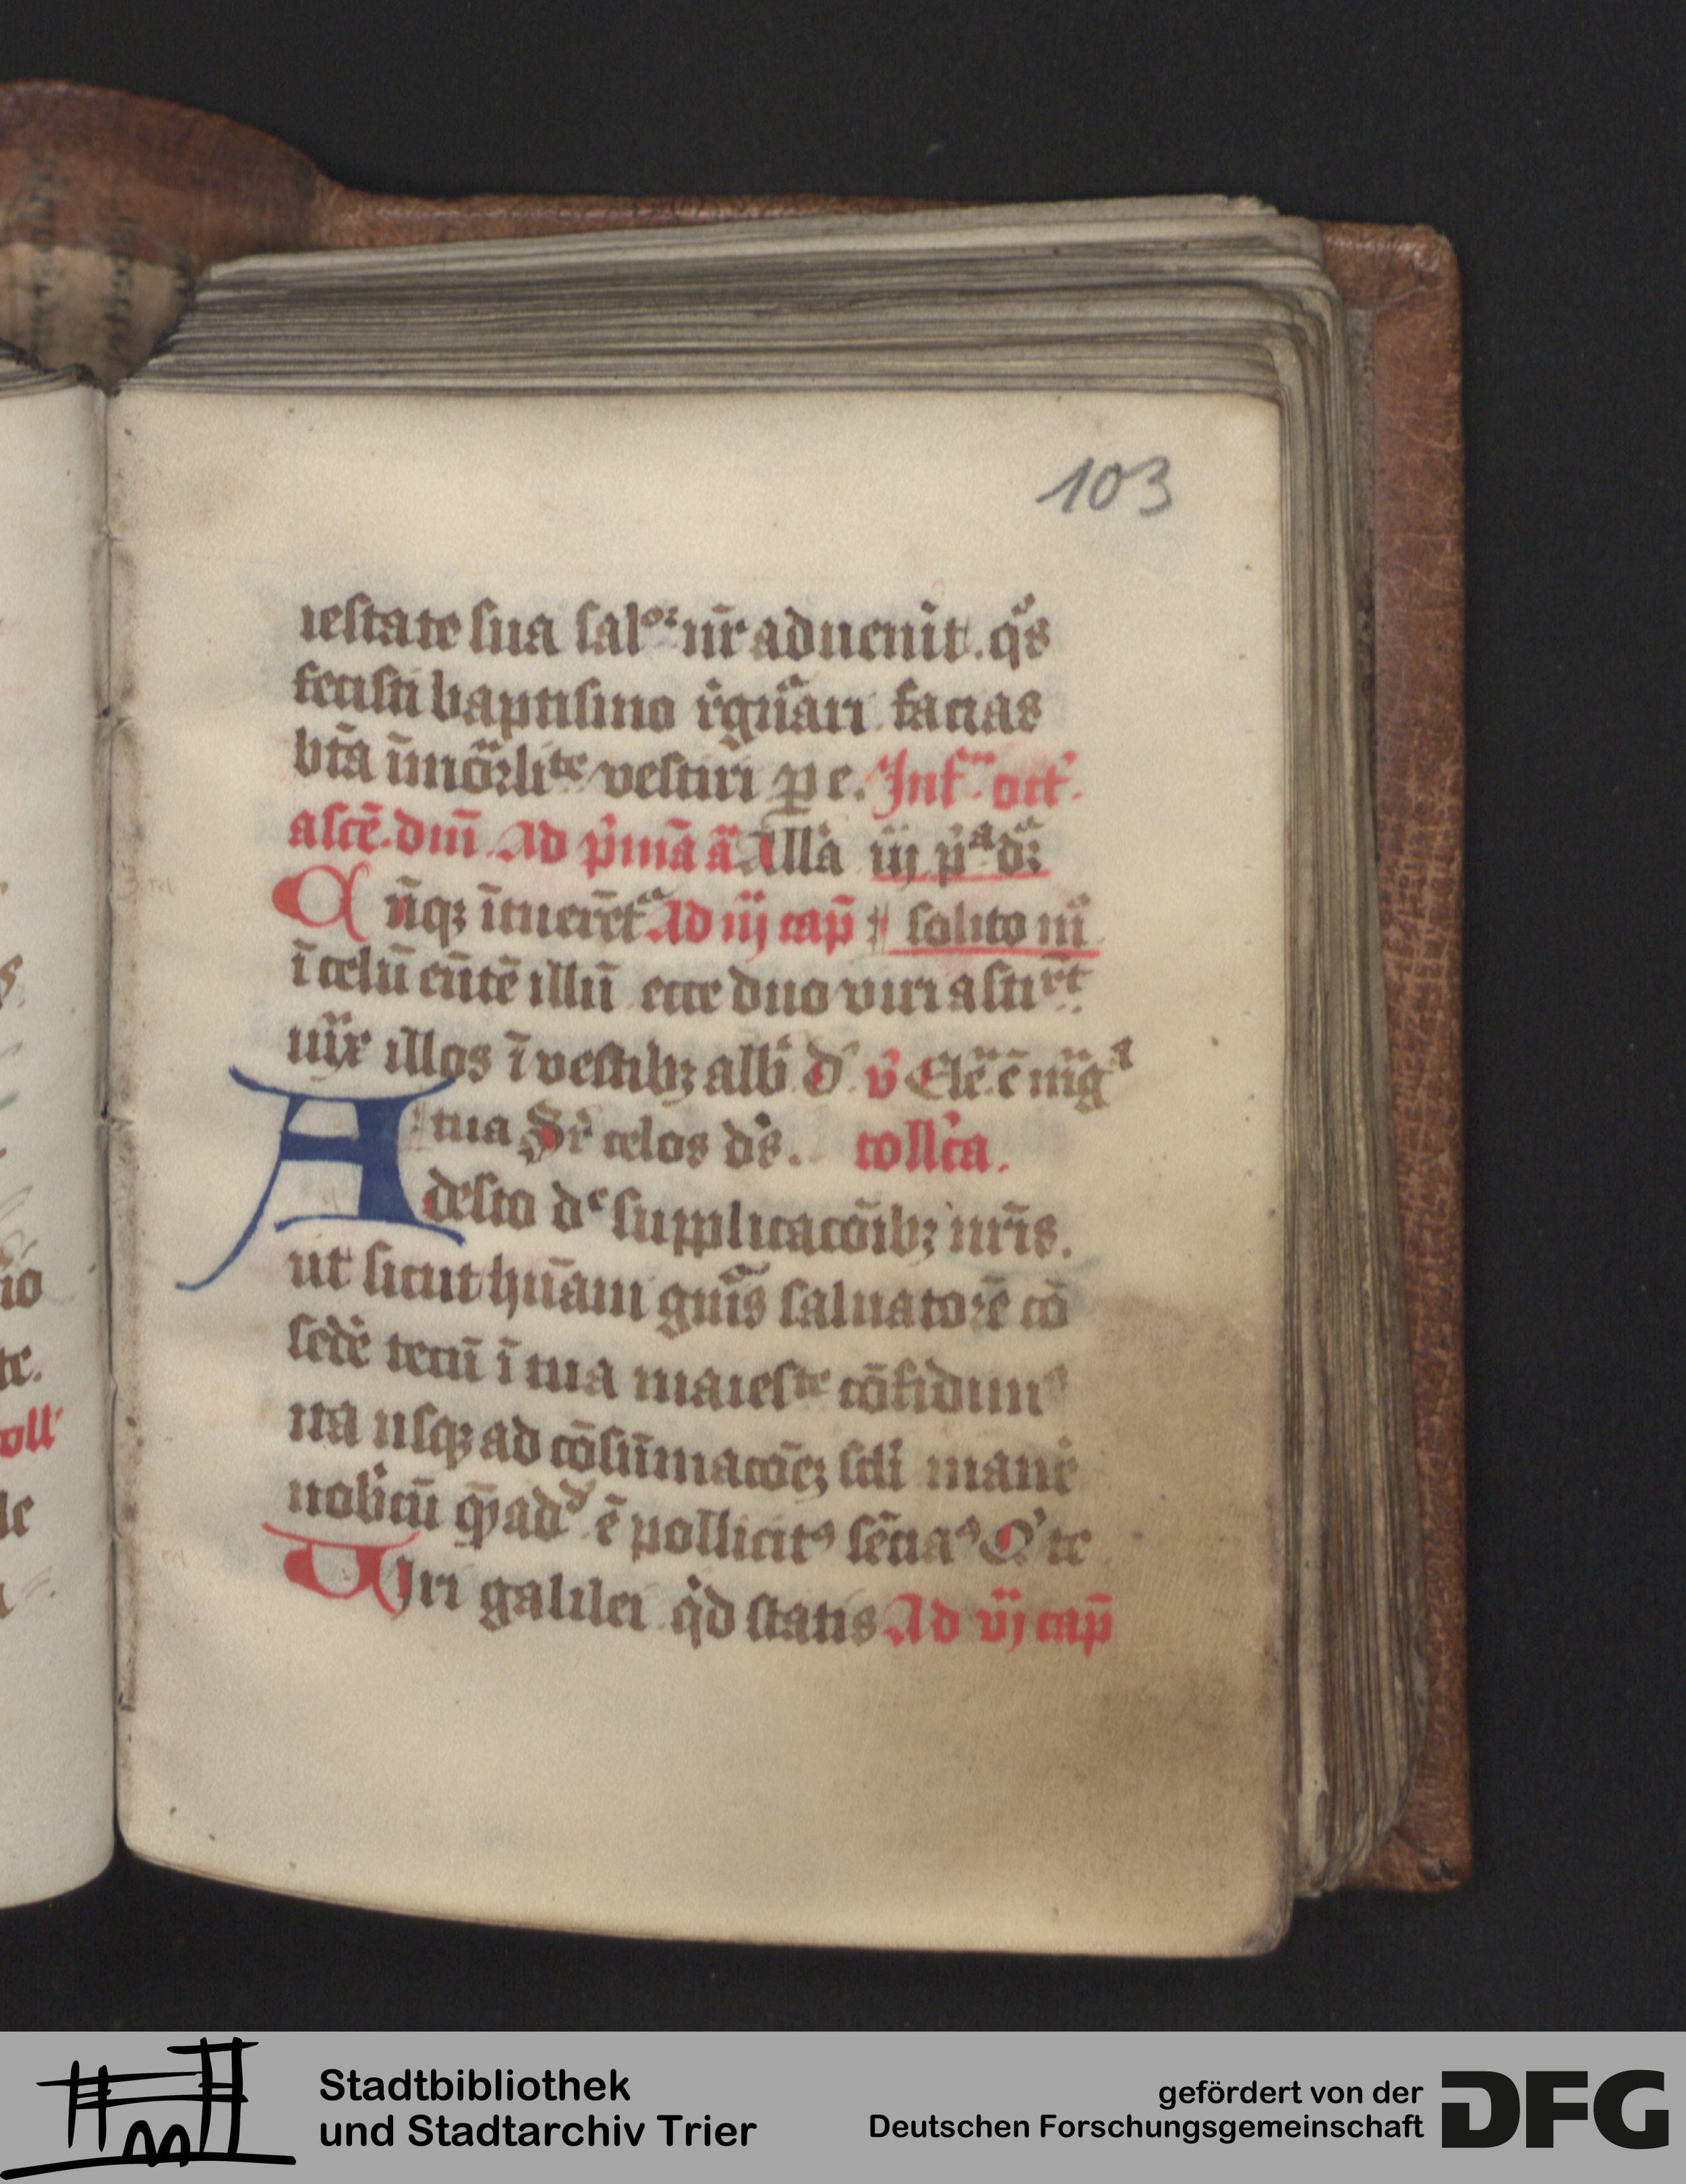 103
iestate sua sal^or nr̄ aduenit. q̊s
fecisti baptismo r̄gn̄ari facias
bt̄a īmor̄li^te vestiri ꝑ e. Inf^a oct'.
ascē. dnī Ad p̄mā a^a Alla iij p^a d:
Qn̄qꝫ ītuerēt^r Ad iij cap̄ solito m̊
ī celū eūtē illū ecce duo viri asti^rt
iux^a illos ī vestibꝫ alb' d' v̄ Ele^a ē mag^a
tua Sr̄ celos ds̄. coll'ca.
Adesto d^e supplicacōibꝫ nr̄is.
ut sicut hūani gn̄is saluatorē cō
sedē tecū ī tua maies^te cōfidimꝰ
ita usqꝫ ad cōsūmacōeꝫ scl̄i manē
nobiscū q̄mad^d ē pollicitꝰ sēciaꝰ Q' tc
Uiri galilei q̊d statis Ad vj cap̄
oll'
Stadtbibliothek
und Stadtarchiv Trier
gefördert von der
Deutschen Forschungsgemeinschaft
DFG